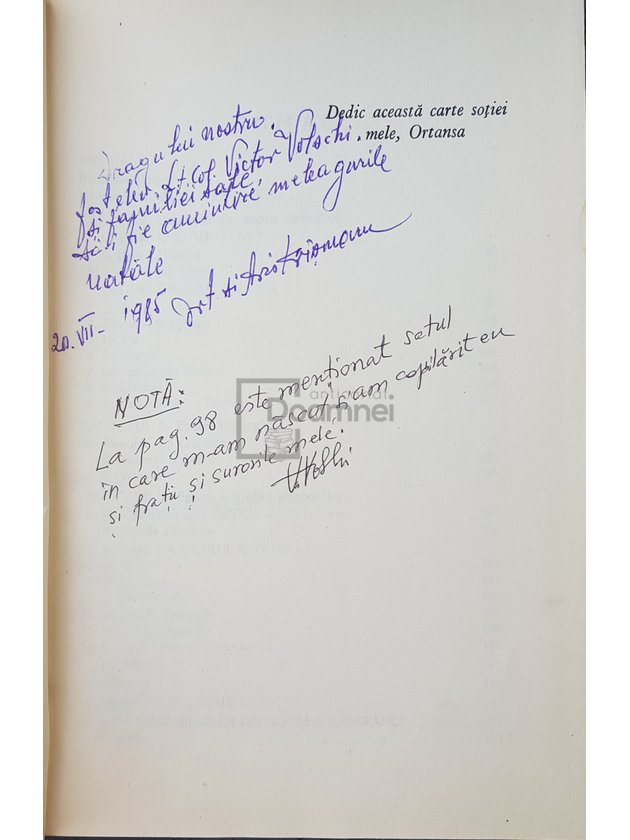 Dedic această carte soției
mele, Ortansa
Dragului nostru
fost elev Lt. Col. Victor Volschi.
și familiei sale
să-i fie amintire meleagurile
natale
20.VII- 1985
NOTĂ:
La pag. 98 este menționat satul
în care m-am născut și am copilărit eu
și frații și surorile mele!
anticariat
Doamnei